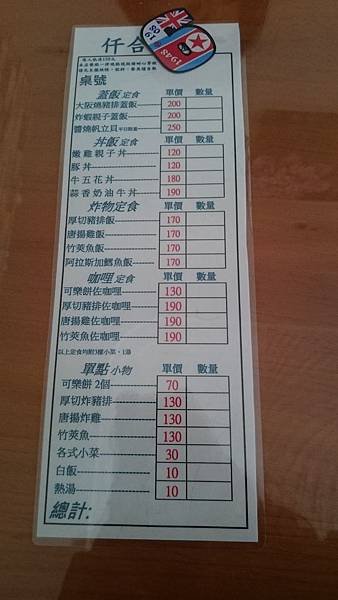 仟合
每人低消150元
桌號
蓋飯 定食 單價 數量
大阪燒豬排蓋飯 200
炸蝦親子蓋飯 200
醬燒帆立貝平日限量 250
丼飯 定食 單價 數量
嫩雞親子丼 120
豚丼 120
牛五花丼 180
蒜香奶油牛丼 190
炸物定食 單價 數量
厚切豬排飯 170
唐揚雞飯 170
竹莢魚飯 170
阿拉斯加鱈魚飯 170
咖哩 定食 單價 數量
可樂餅佐咖哩 130
厚切豬排佐咖哩 190
唐揚雞佐咖哩 190
竹莢魚佐咖哩 190
以上定食均附3樣小菜、1湯
單點 小物 單價 數量
可樂餅 2個 70
厚切炸豬排 130
唐揚炸雞 130
竹莢魚 130
各式小菜 30
白飯 10
熱湯 10
總計:
1948